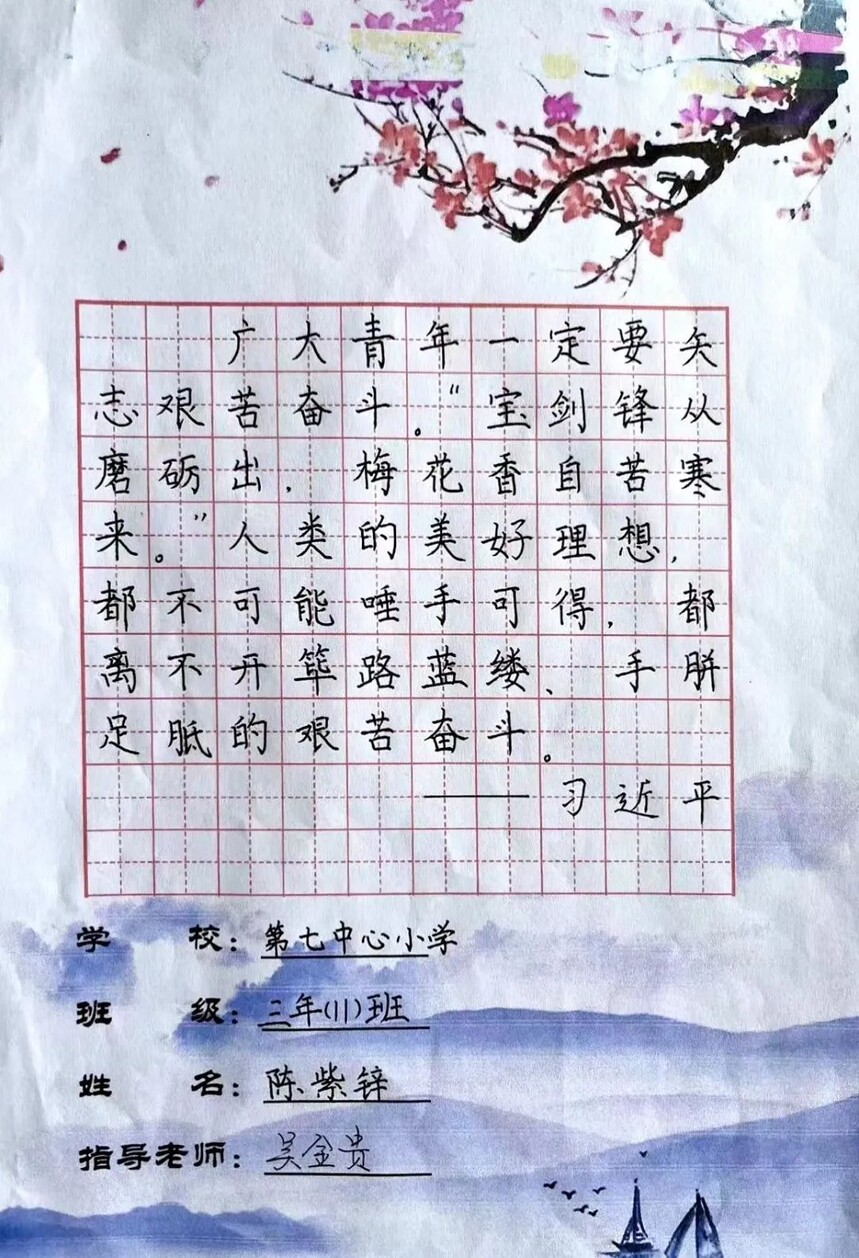 广大青年一定要矢
志艰苦奋斗。“宝剑锋从
磨砺出，梅花香自苦寒
来。”人类的美好理想，
都不可能唾手可得，都
离不开筚路蓝缕、手胼
足胝的艰苦奋斗。
——习近平
学校：第七中心小学
班级：三年(11)班
姓名：陈紫锌
指导老师：吴金贵